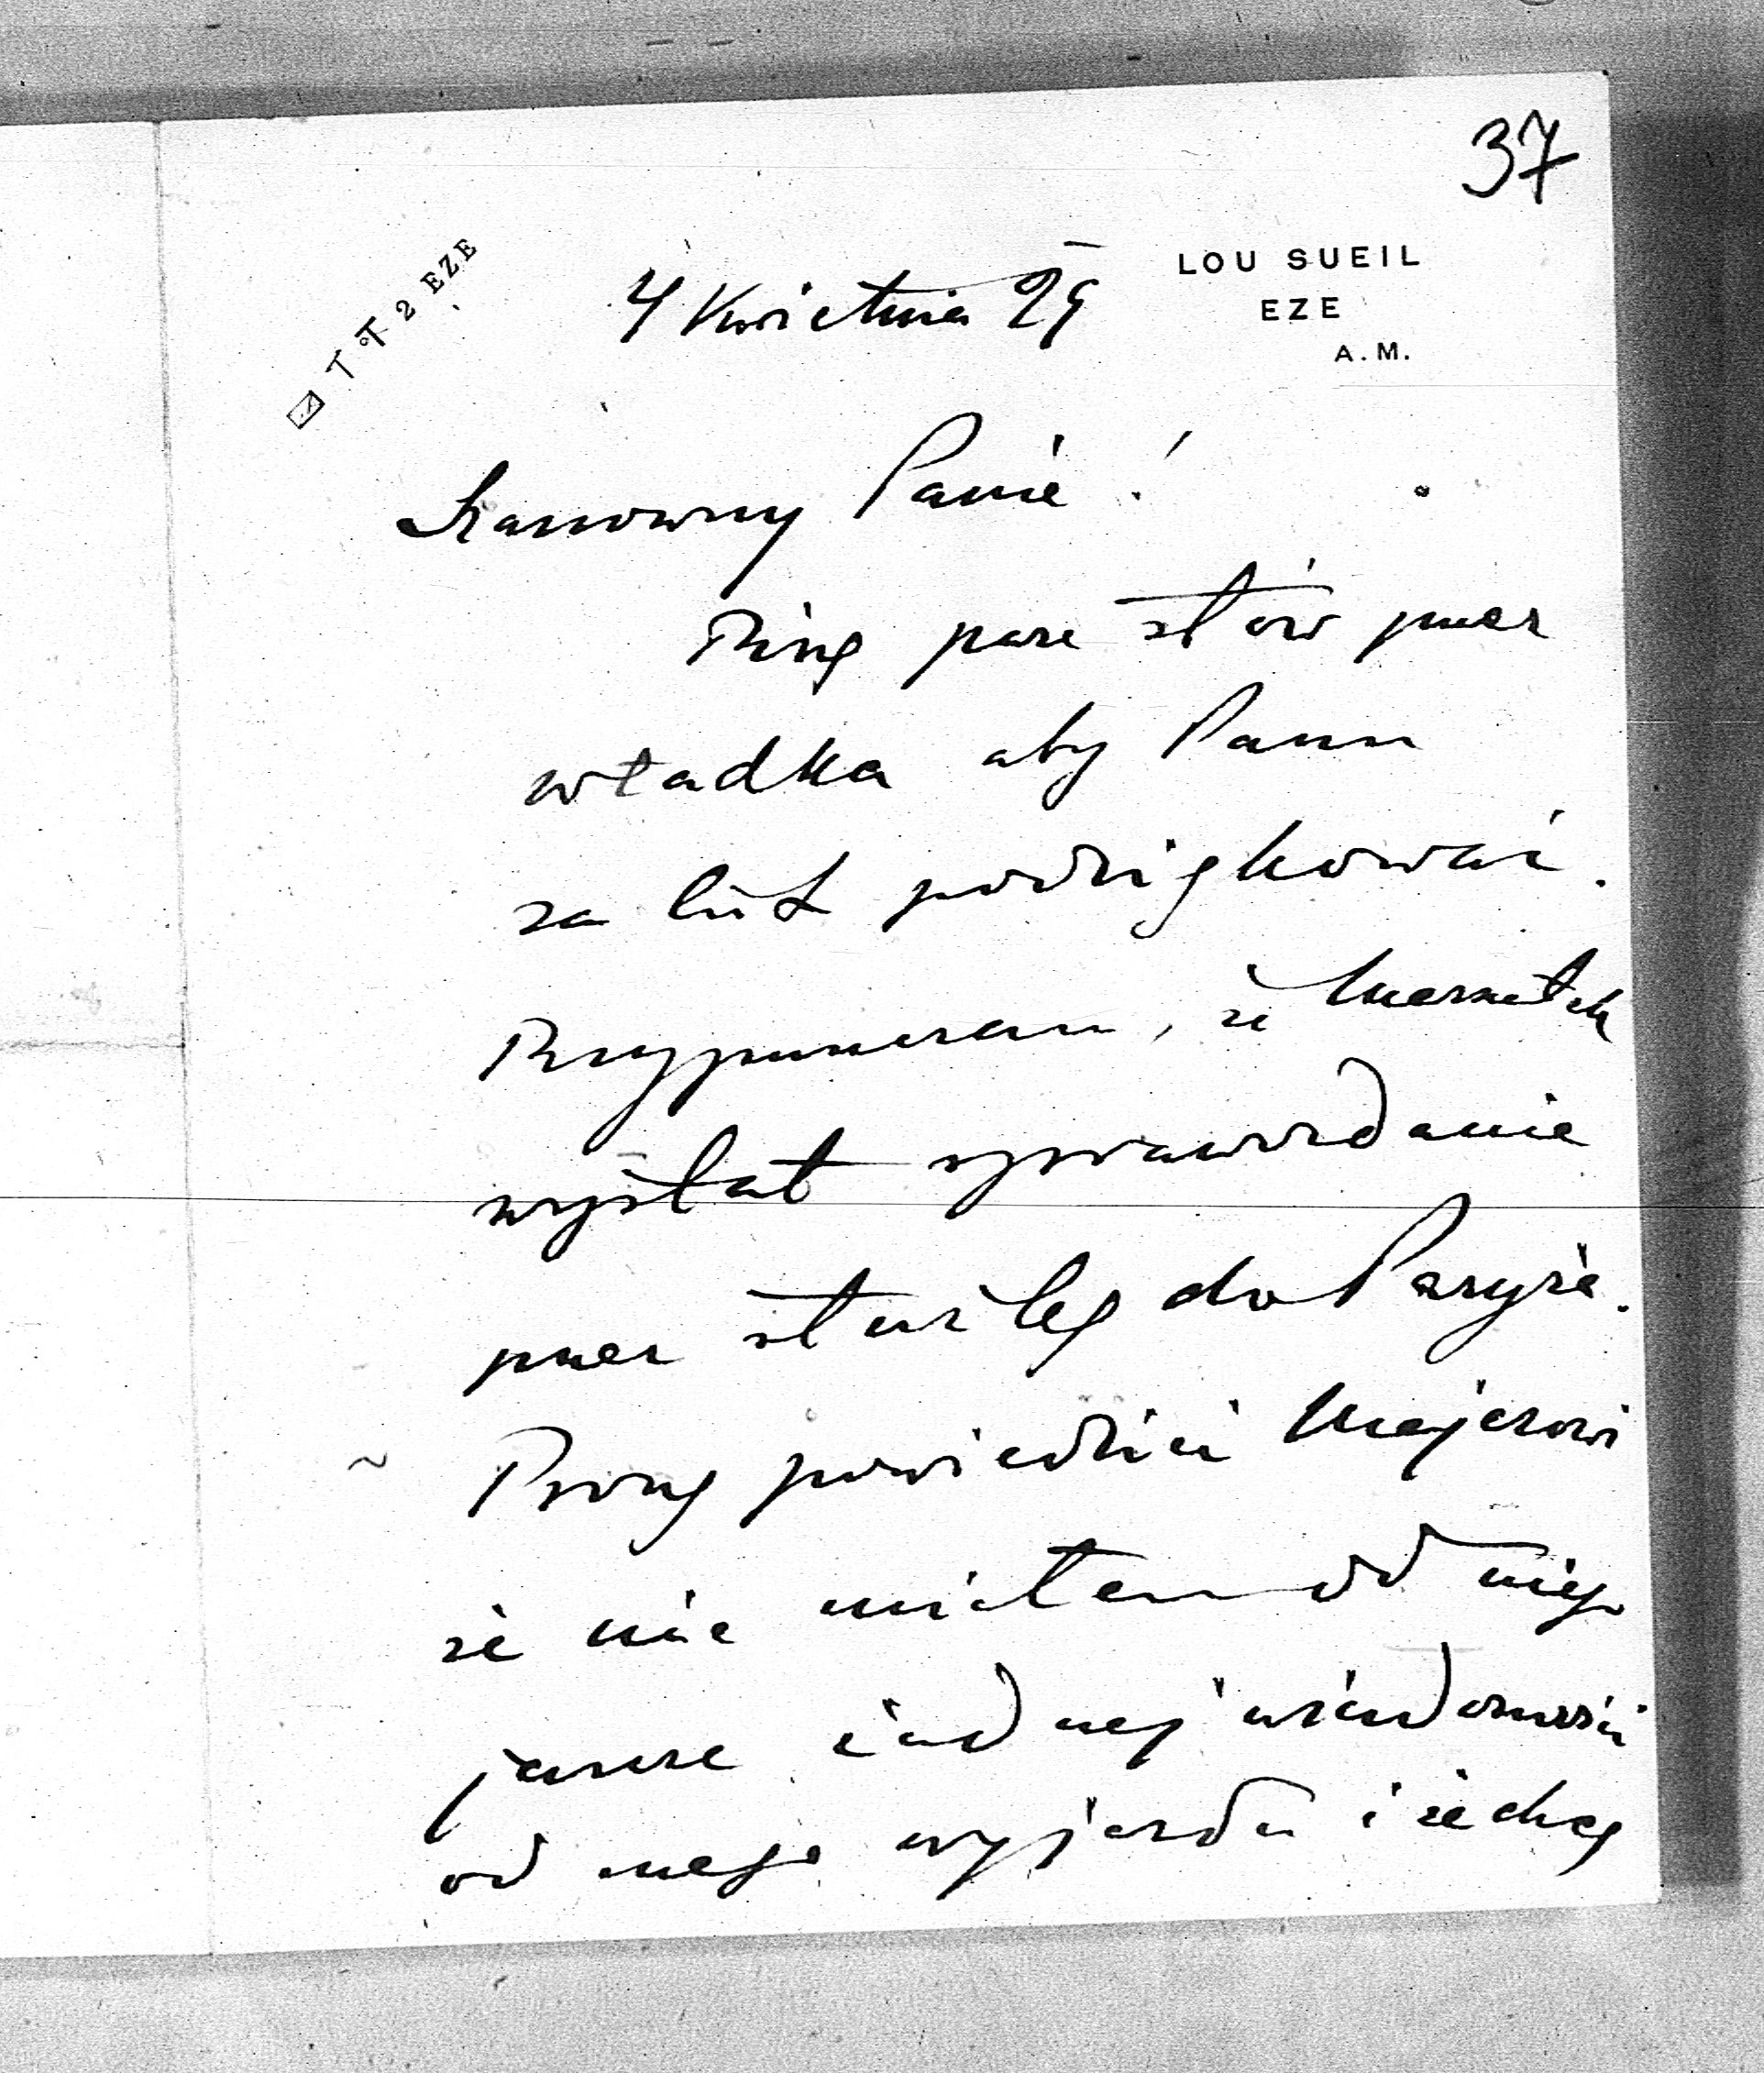 37
LOU SUEIL
EZE
A.M.
T T 2 EZE
4 Kwietnia 29
Szanowny Panie!
Piszę parę słów przez
Władka aby Panu
za list podziękować.
Przypuszczam, że
wysłał sprawozdanie
przez służbę do Paryża.
Proszę powiedzieć Majerowi
że nie miałem od niego
jeszcze żadnej wiadomości
od mego wyjazdu i że chcę